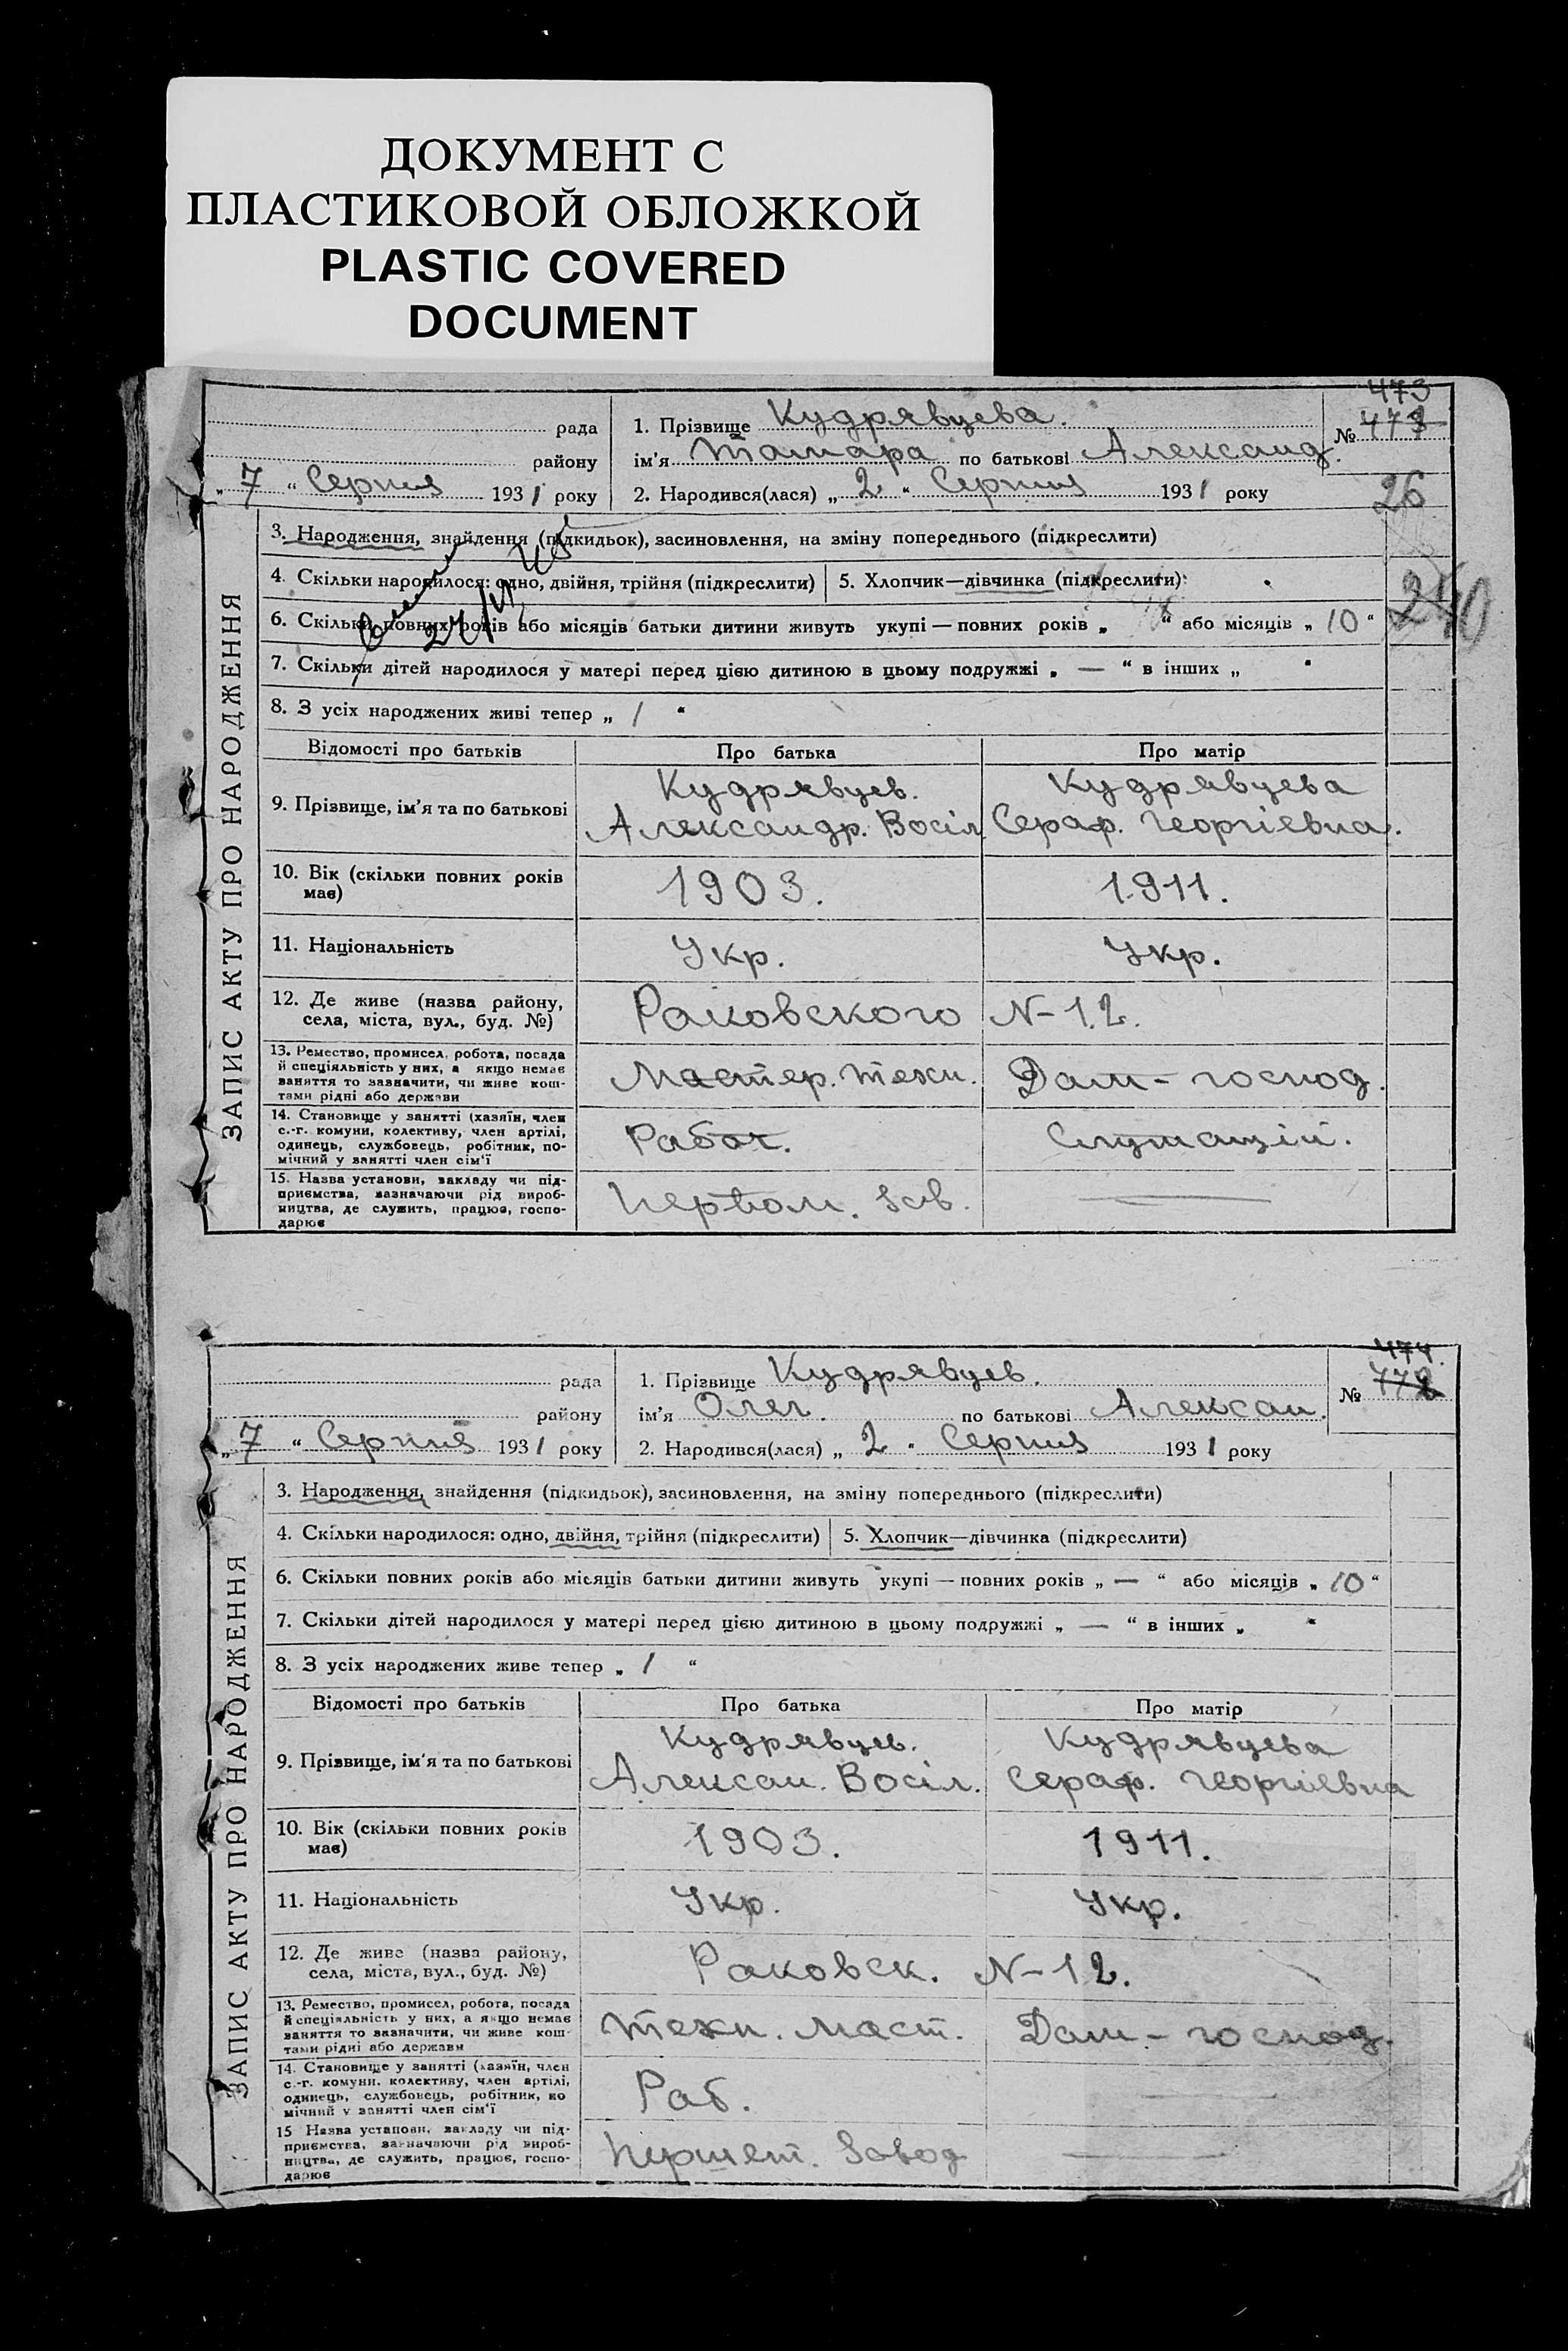 ДОКУМЕНТ С
ПЛАСТИКОВОЙ ОБЛОЖКОЙ
PLASTIC COVERED
DOCUMENT
473
рада 1. Прізвище Кудрявцева. №
району ім'я Тамара по батькові Александ.
„7“ Серпня 1931 року 2. Народився(лася) „2“ Серпня 1931 року
26
ЗАПИС АКТУ ПРО НАРОДЖЕННЯ
3. Народження, знайдення (підкидьок), засиновлення, на зміну попереднього (підкреслити)
4. Скільки народилося: одно, двійня, трійня (підкреслити) 5. Хлопчик—дівчинка (підкреслити)
6. Скільки повних років або місяців батьки дитини живуть укупі — повних років „ “ або місяців „10“
7. Скільки дітей народилося у матері перед цією дитиною в цьому подружжі „—“ в інших „ “
8. З усіх народжених живі тепер „1“
Відомості про батьків Про батька Про матір
9. Прізвище, ім'я та по батькові Кудрявцев. Кудрявцева
Александр. Восіл Сераф. Георгіевна.
10. Вік (скільки повних років має) 1903. 1911.
11. Національність Укр. Укр.
12. Де живе (назва району, села, міста, вул., буд. №) Раковского N-12.
13. Ремество, промисел, робота, посада
й спеціяльність у них, а якщо немає
заняття то зазначити, чи живе кош-
тами рідні або держави
Мастер. техн. Дом-господ.
14. Становище у занятті (хазяїн, член
с.-г. комуни, колективу, член артілі,
одинець, службовець, робітник, по-
мічний у занятті член сім'ї
Рабоч.
15. Назва установи, закладу чи під-
приємства, зазначаючи рід вироб-
ництва, де служить, працює, госпо-
дарює
Первом. Зав. —
474.
рада 1. Прізвище Кудрявцев. №
району ім'я Олег. по батькові Алексан.
„7“ Серпня 1931 року 2. Народився(лася) „2“ Серпня 1931 року
ЗАПИС АКТУ ПРО НАРОДЖЕННЯ
3. Народження, знайдення (підкидьок), засиновлення, на зміну попереднього (підкреслити)
4. Скільки народилося: одно, двійня, трійня (підкреслити) 5. Хлопчик—дівчинка (підкреслити)
6. Скільки повних років або місяців батьки дитини живуть укупі — повних років „—“ або місяців „10“
7. Скільки дітей народилося у матері перед цією дитиною в цьому подружжі „—“ в інших „ “
8. З усіх народжених живе тепер „1“
Відомості про батьків Про батька Про матір
9. Прізвище, ім'я та по батькові Кудрявцев. Кудрявцева
Алексан. Восіл. Сераф. Георгіевна
10. Вік (скільки повних років має) 1903. 1911.
11. Національність Укр. Укр.
12. Де живе (назва району, села, міста, вул., буд. №) Раковск. N-12.
13. Ремество, промисел, робота, посада
й спеціяльність у них, а якщо немає
заняття то зазначити, чи живе кош-
тами рідні або держави
Техн. маст. Дом-господ.
14. Становище у занятті (хазяїн, член
с.-г. комуни, колективу, член артілі,
одинець, службовець, робітник, по
мічний у занятті член сім'ї
Раб. —
15 Назва установи, закладу чи під-
приємства, зазначаючи рід вироб-
ництва, де служить, працює, госпо-
дарює
Завод —